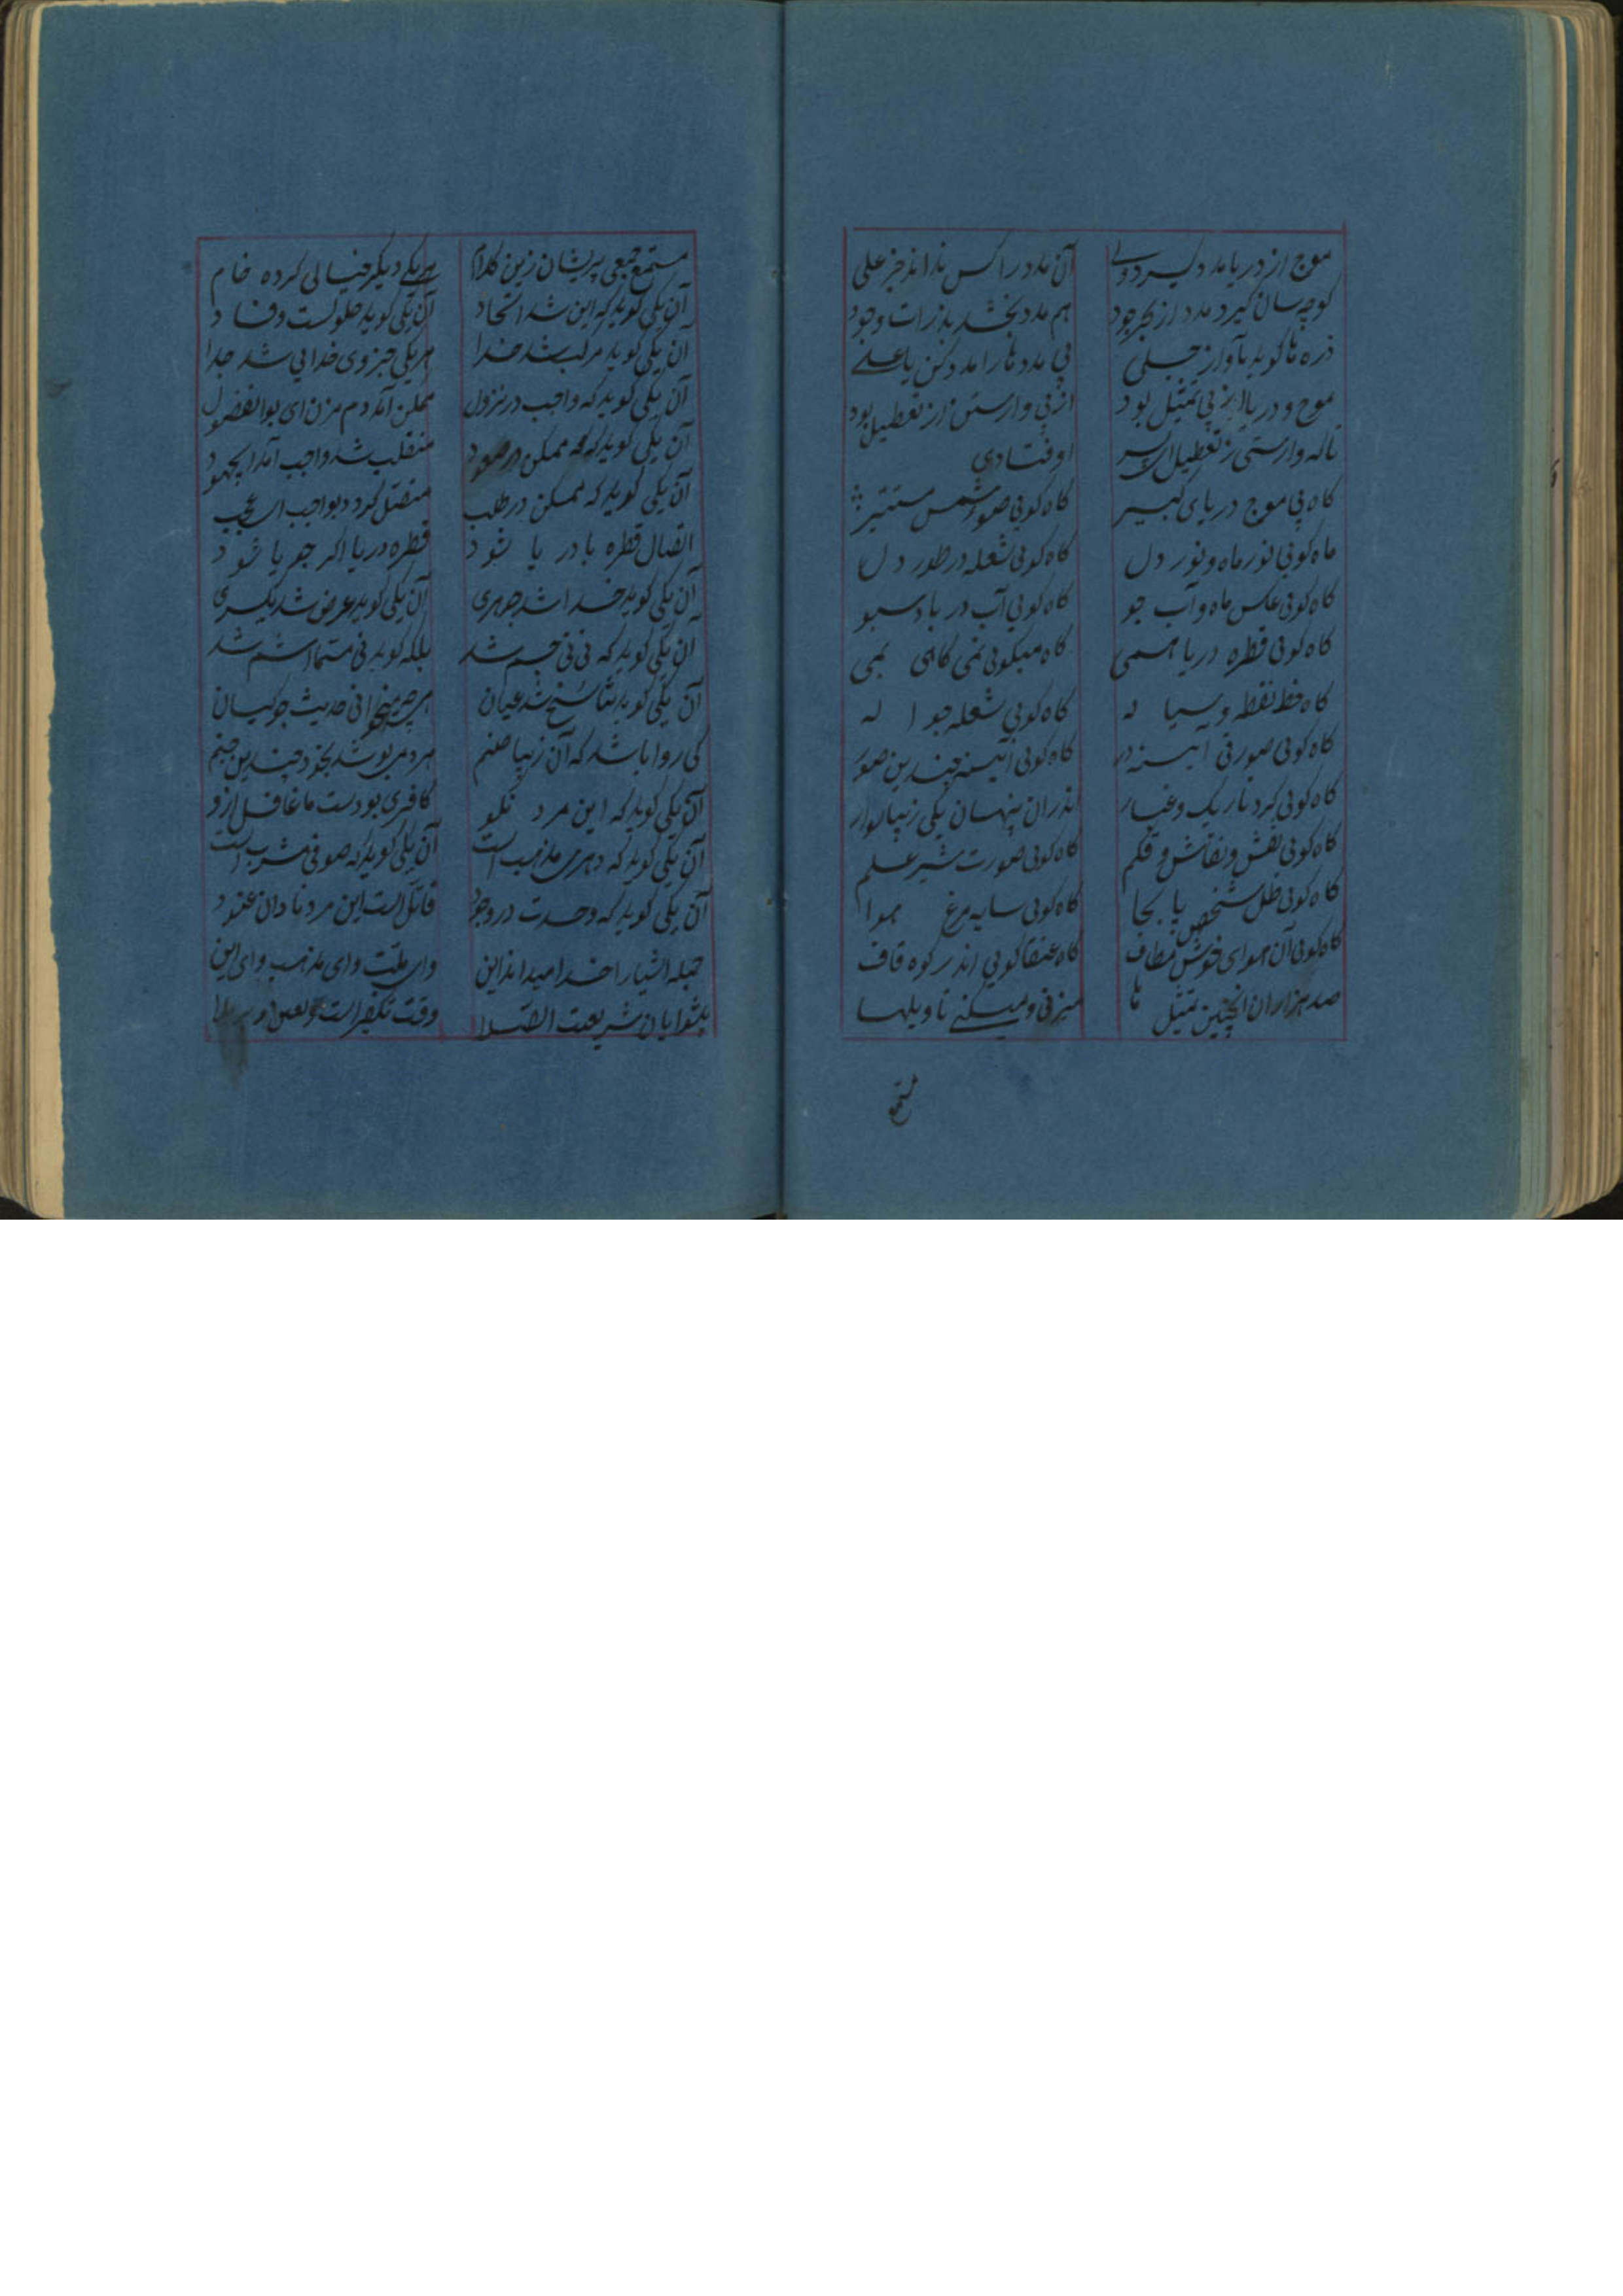 موج از دریا مدد گیرد ولی آن مدد را کس نداند جز علی
کو چه سان گیرد مدد از بحر جود هم مدد بخشد بذرات وجود
ذره ها گوید بآواز جلی بی مددها را مدد کن یا علے
موج و دریا از پی تمثیل بود از پی وارستن از تعطیل بود
تا که وارستی ز تعطیل اوفتادی
گاه گویی موج دریای کبیر گاه گویی ضوء شمس مستنیر
ماه گویی نور ماه و نور دل گاه گویی شعله در طور دل
گاه گویی عکس ماه و آب جو گاه گویی آب دریا و سبو
گاه گویی قطره دریا همی گاه میگویی نمی گاهی یمی
گاه خط نقطه و سیاله گاه گویی شعله جواله
گاه گویی صورتی آیینه در گاه گویی آیینه چندین صور
گاه گویی گرد تاریک و غبار اندران پنهان یکی زیبا سوار
گاه گویی نقش و نقاش و قلم گاه گویی صورت شیر علم
گاه گویی ظل شخص پا بجا گاه گویی سایه مرغ هوا
گاه گویی آن هوای خوش مطاف گاه عنقا گویی اندر کوه قاف
صد هزاران اینچنین تمثیل ها میزنی و میکنے تاویلها
مستمع
مستمع جمعی پریشان زین کلام هر یکے دیگر خیالی کرده خام
آن یکی گوید که این شد اتحاد آن یکی گوید حلولست و فساد
آن یکی گوید مرکب شد خدا هر یکی جزوی خدایی شد جدا
آن یکی گوید که واجب در نزول ممکن آمد دم مزن ای بوالفضول
آن یکی گوید که ممکن در صعود منقلب شد واجب آمد ای جهود
آن یکی گوید که ممکن در طلب متصل گردد بواجب ای عجب
اتصال قطره با دریا شود قطره دریا اگر جویا شود
آن یکی گوید خدا شد جوهری آن یکی گوید عرض شد یکسری
آن یکی گوید که نی نی جسم شد بلکه گوید نی مسما اسم شد
آن یکی گوید تناسخ شد عیان هر چه میخوانی حدیث جوکیان
کی روا باشد که آن زیبا صنم هر دمی پوشد بخود چندین جنم
آن یکی گوید که این مرد نکو کافری بودست ما غافل ازو
آن یکی گوید که دهری مذهب است آن یکی گوید که صوفی مشرب است
آن یکی گوید که وحدت در وجود قائل است این مرد نادان عنود
جمله اشیا را خدا میداند این وای ملت وای مذهب وای این
پیشوایان شریعت الصلا وقت تکفیر است و لعن